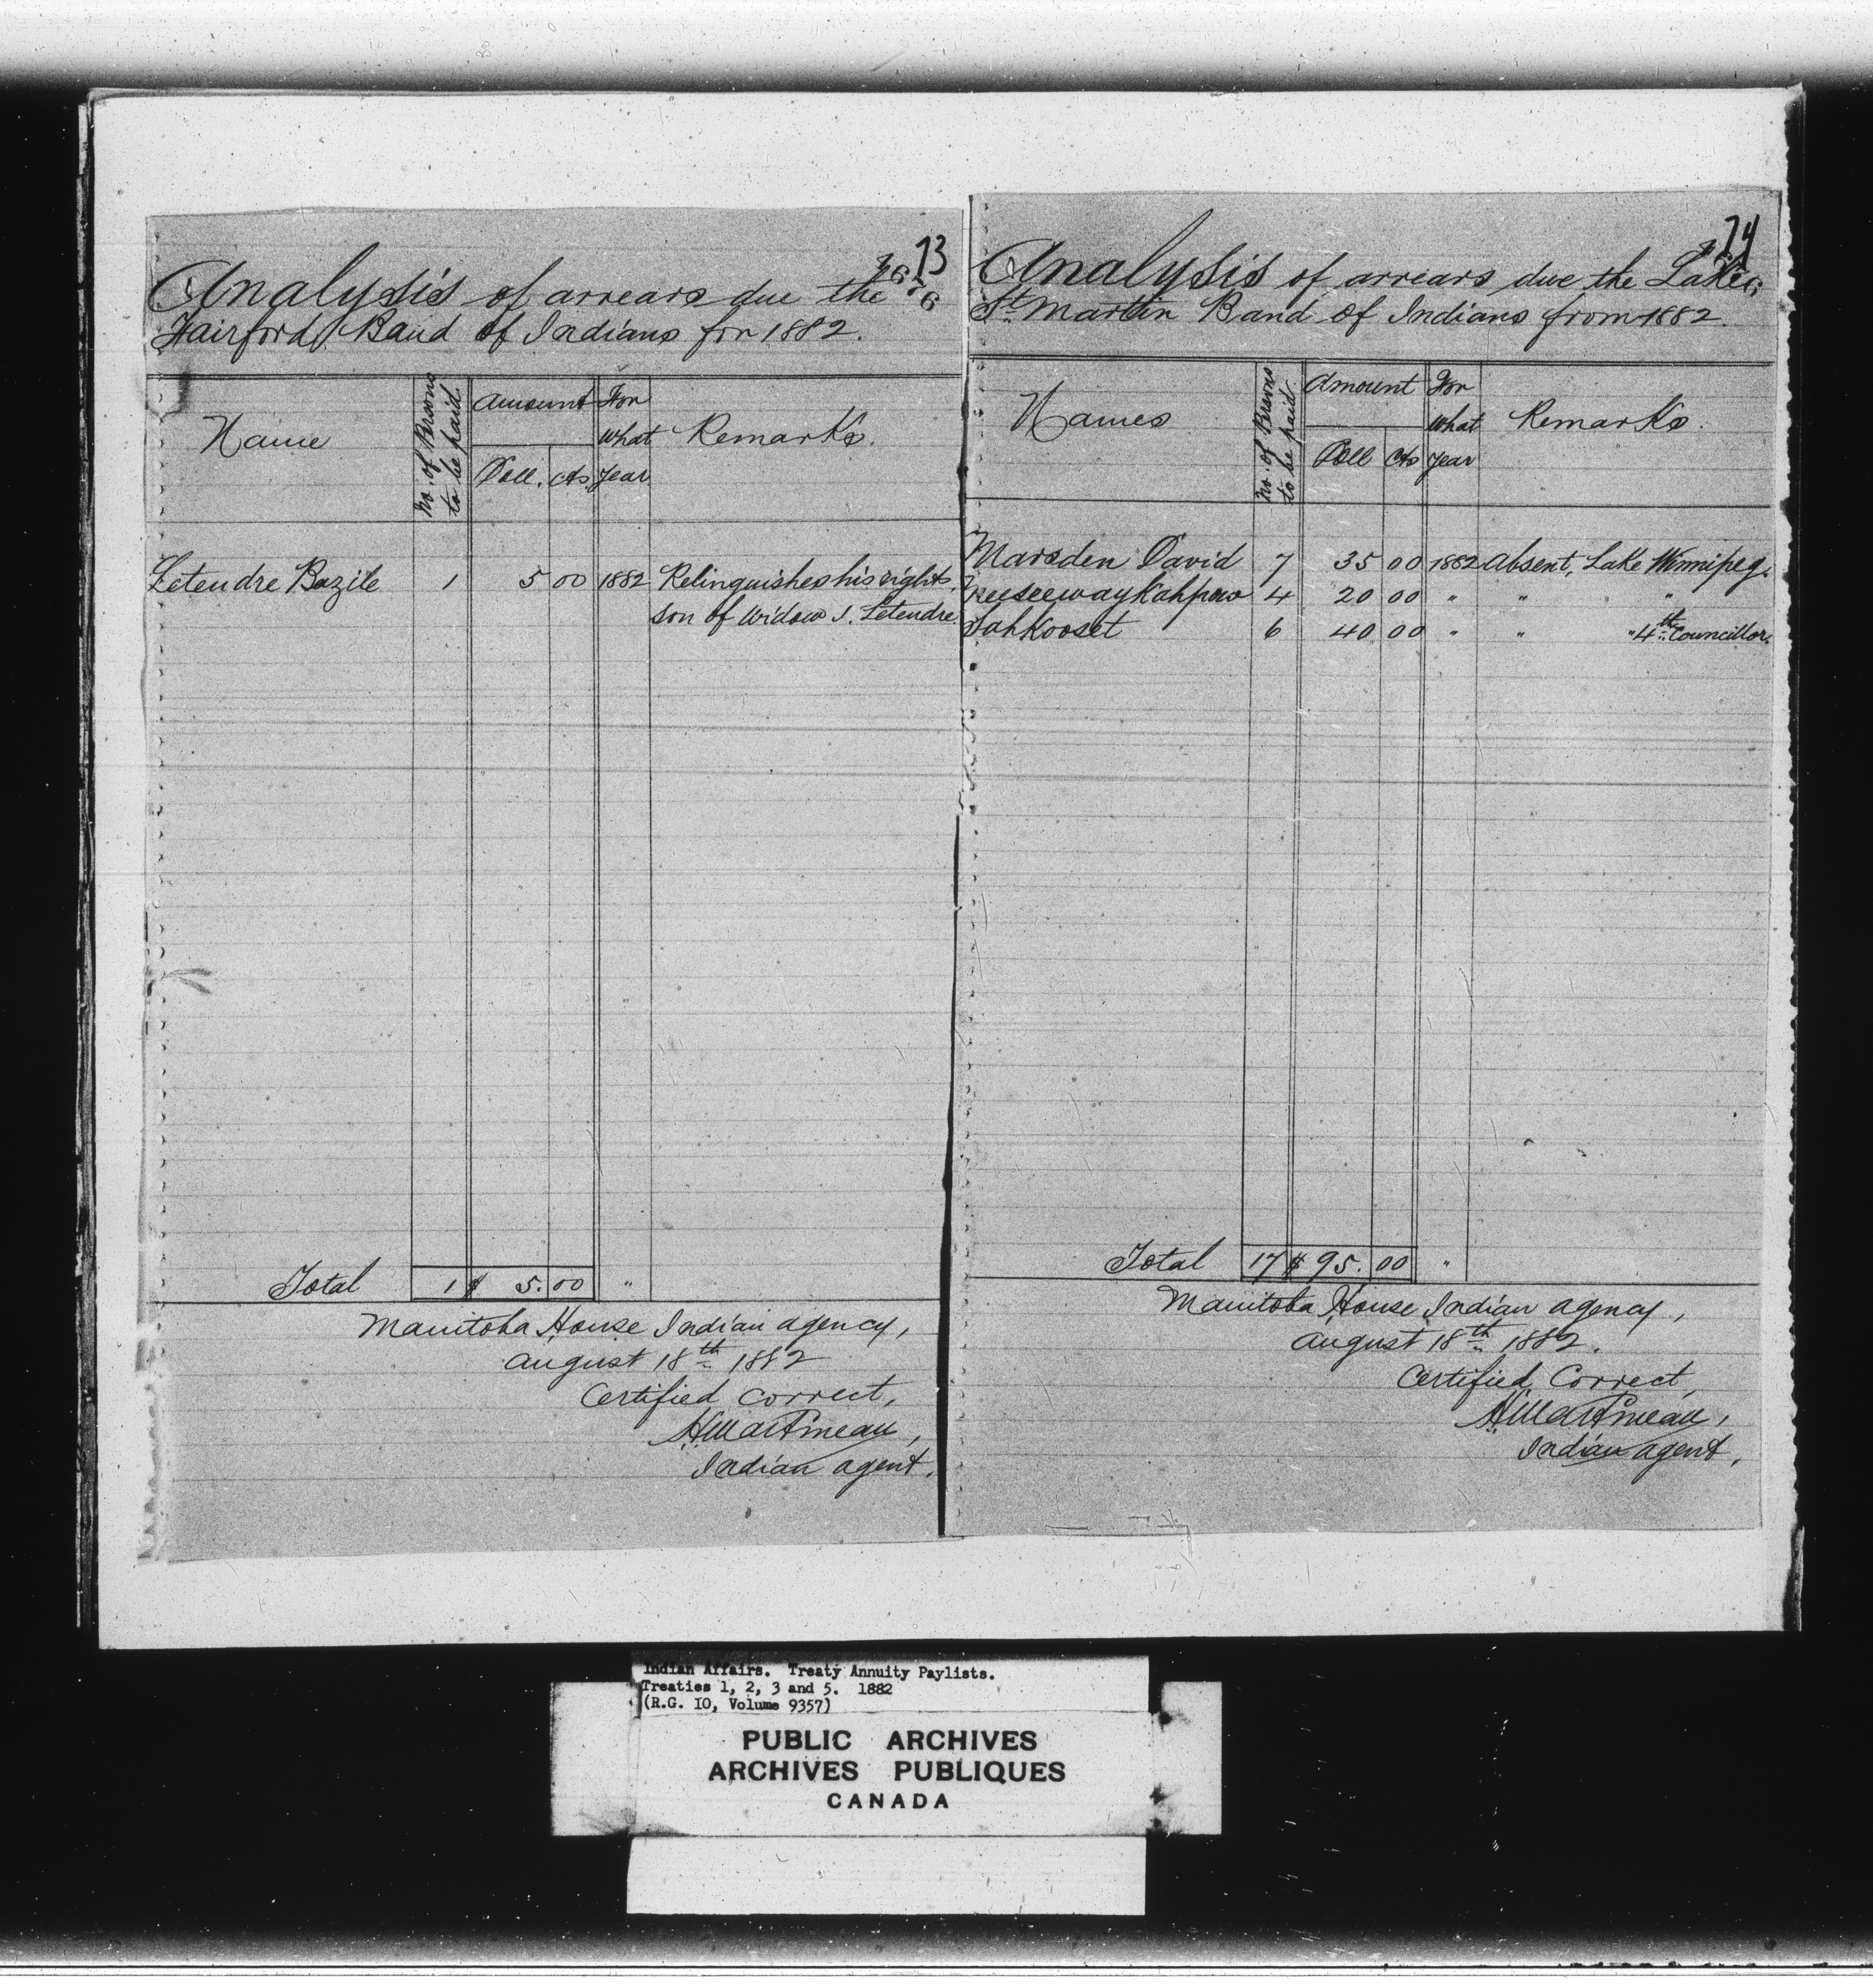 73
Analysis of arrears due the
Fairford Band of Indians for 1882.
Name
No. of Persons to be paid
Amount
Doll. cts
For what year
Remarks.
Letendre Bazile 1 5 00 1882 Relinquishes his rights.
son of Widow J. Letendre
Total 1 $ 5.00 "
Manitoba House Indian agency,
august 18th 1882
Certified correct,
H. Martineau,
Indian agent.
74
Analysis of arrears due the Lake
St. Martin Band of Indians from 1882.
Names
No. of Persons to be paid
Amount
Doll cts
For what year
Remarks.
Marsden David 7 35 00 1882 absent, Lake Winnipeg.
4 20 00 " " "
Sahkooset 6 40 00 " " " 4th Councillor.
Total 17 $ 95.00 "
Manitoba House Indian agency,
august 18th 1882.
Certified Correct,
H. Martineau,
Indian agent,
Indian Affairs. Treaty Annuity Paylists.
Treaties 1, 2, 3 and 5. 1882
(R.G. 10, Volume 9357)
PUBLIC ARCHIVES
ARCHIVES PUBLIQUES
CANADA